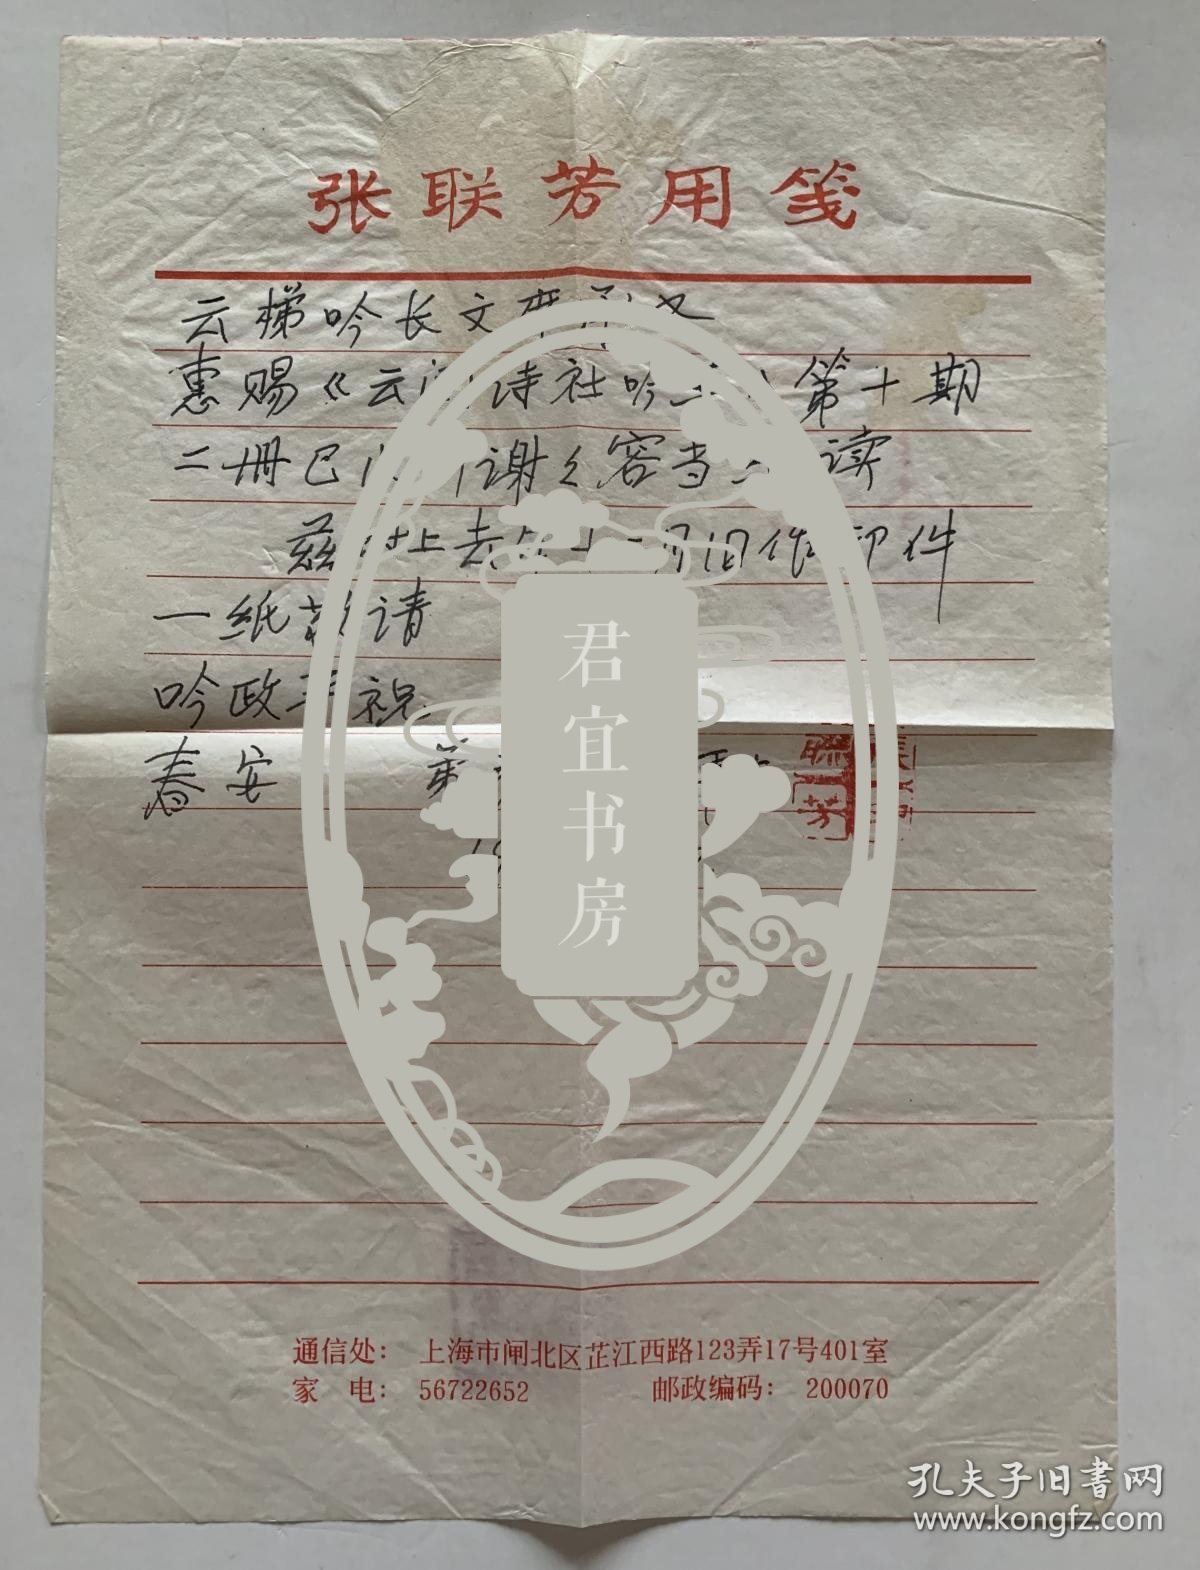 张联芳用笺
云梯吟长文席承又
惠赐《云间诗社吟 第十期
二册已 谢々容当 读
兹附上去年十一月旧作印件
一纸敬请
吟政并祝
春安 弟
君宜书房
通信处： 上海市闸北区芷江西路123弄17号401室
家 电： 56722652 邮政编码： 200070
孔夫子旧书网
www.kongfz.com